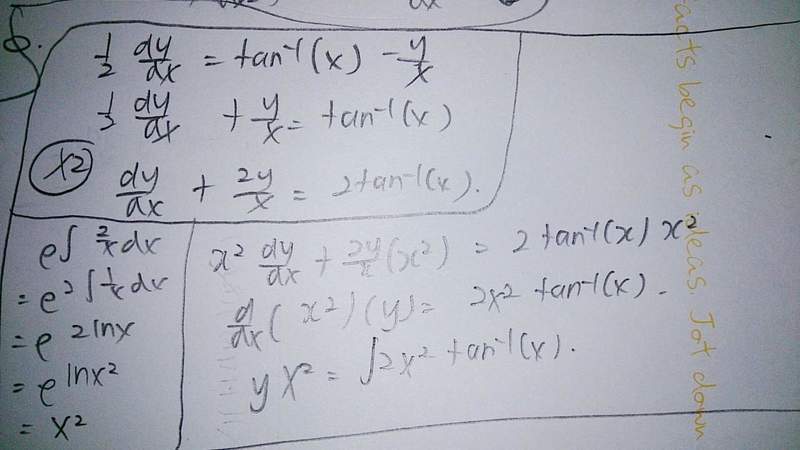 6.
½ dy/dx = tan⁻¹(x) − y/x
½ dy/dx + y/x = tan⁻¹(x)
×2
dy/dx + 2y/x = 2tan⁻¹(x).
e∫ 2/x dx
= e^2∫ 1/x dx
= e^2lnx
= e^lnx²
= x²
x² dy/dx + 2y/x (x²) = 2 tan⁻¹(x) x²
d/dx ( x²)(y) = 2x² tan⁻¹(x).
yx² = ∫2x² tan⁻¹(x).
acts begin as ideas. Jot down